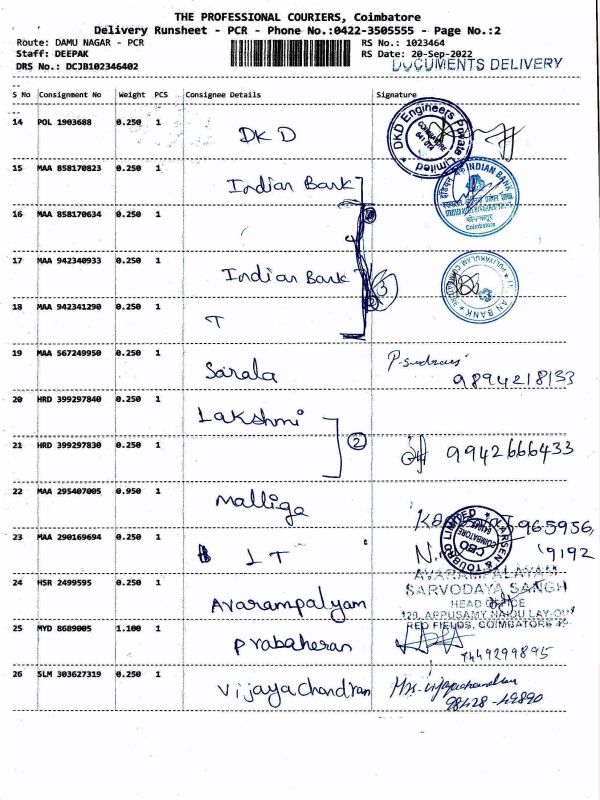 THE PROFESSIONAL COURIERS, Coimbatore
Delivery Runsheet - PCR - Phone No.:0422-3505555 - Page No.:2
Route: DAMU NAGAR - PCR RS No.: 1023464
Staff: DEEPAK RS Date: 20-Sep-2022
DRS No.: DCJB102346402 DOCUMENTS DELIVERY
S No Consignment No Weight PCS Consignee Details Signature
14 POL 1903688 0.250 1 DKD
DKD Engineers Private Limited
COIMBATORE
641 014
15 MAA 858170823 0.250 1 Indian Bank
INDIAN BANK
Coimbatore
16 MAA 858170634 0.250 1
17 MAA 942340933 0.250 1 Indian Bank 3
18 MAA 942341290 0.250 1 T
19 MAA 567249950 0.250 1 Sarala
9894218133
20 HRD 399297840 0.250 1 Lakshmi
2
21 HRD 399297830 0.250 1 9942666433
22 MAA 295407005 0.950 1 Malliga
965956,
23 MAA 290169694 0.250 1 L T
LARSEN & TOUBRO LIMITED
COIMBATORE
9192
24 HSR 2499595 0.250 1 Avarampalyam
AVARAMPALAYAM
SARVODAYA SANGH
HEAD OFFICE
129, APPUSAMY NAIDU LAY-OUT
RED FIELDS, COIMBATORE
25 MYD 8689005 1.100 1 Prabaheran
26 SLM 303627319 0.250 1 Vijayachandran
Mrs. Vijayachandran
98428-49890